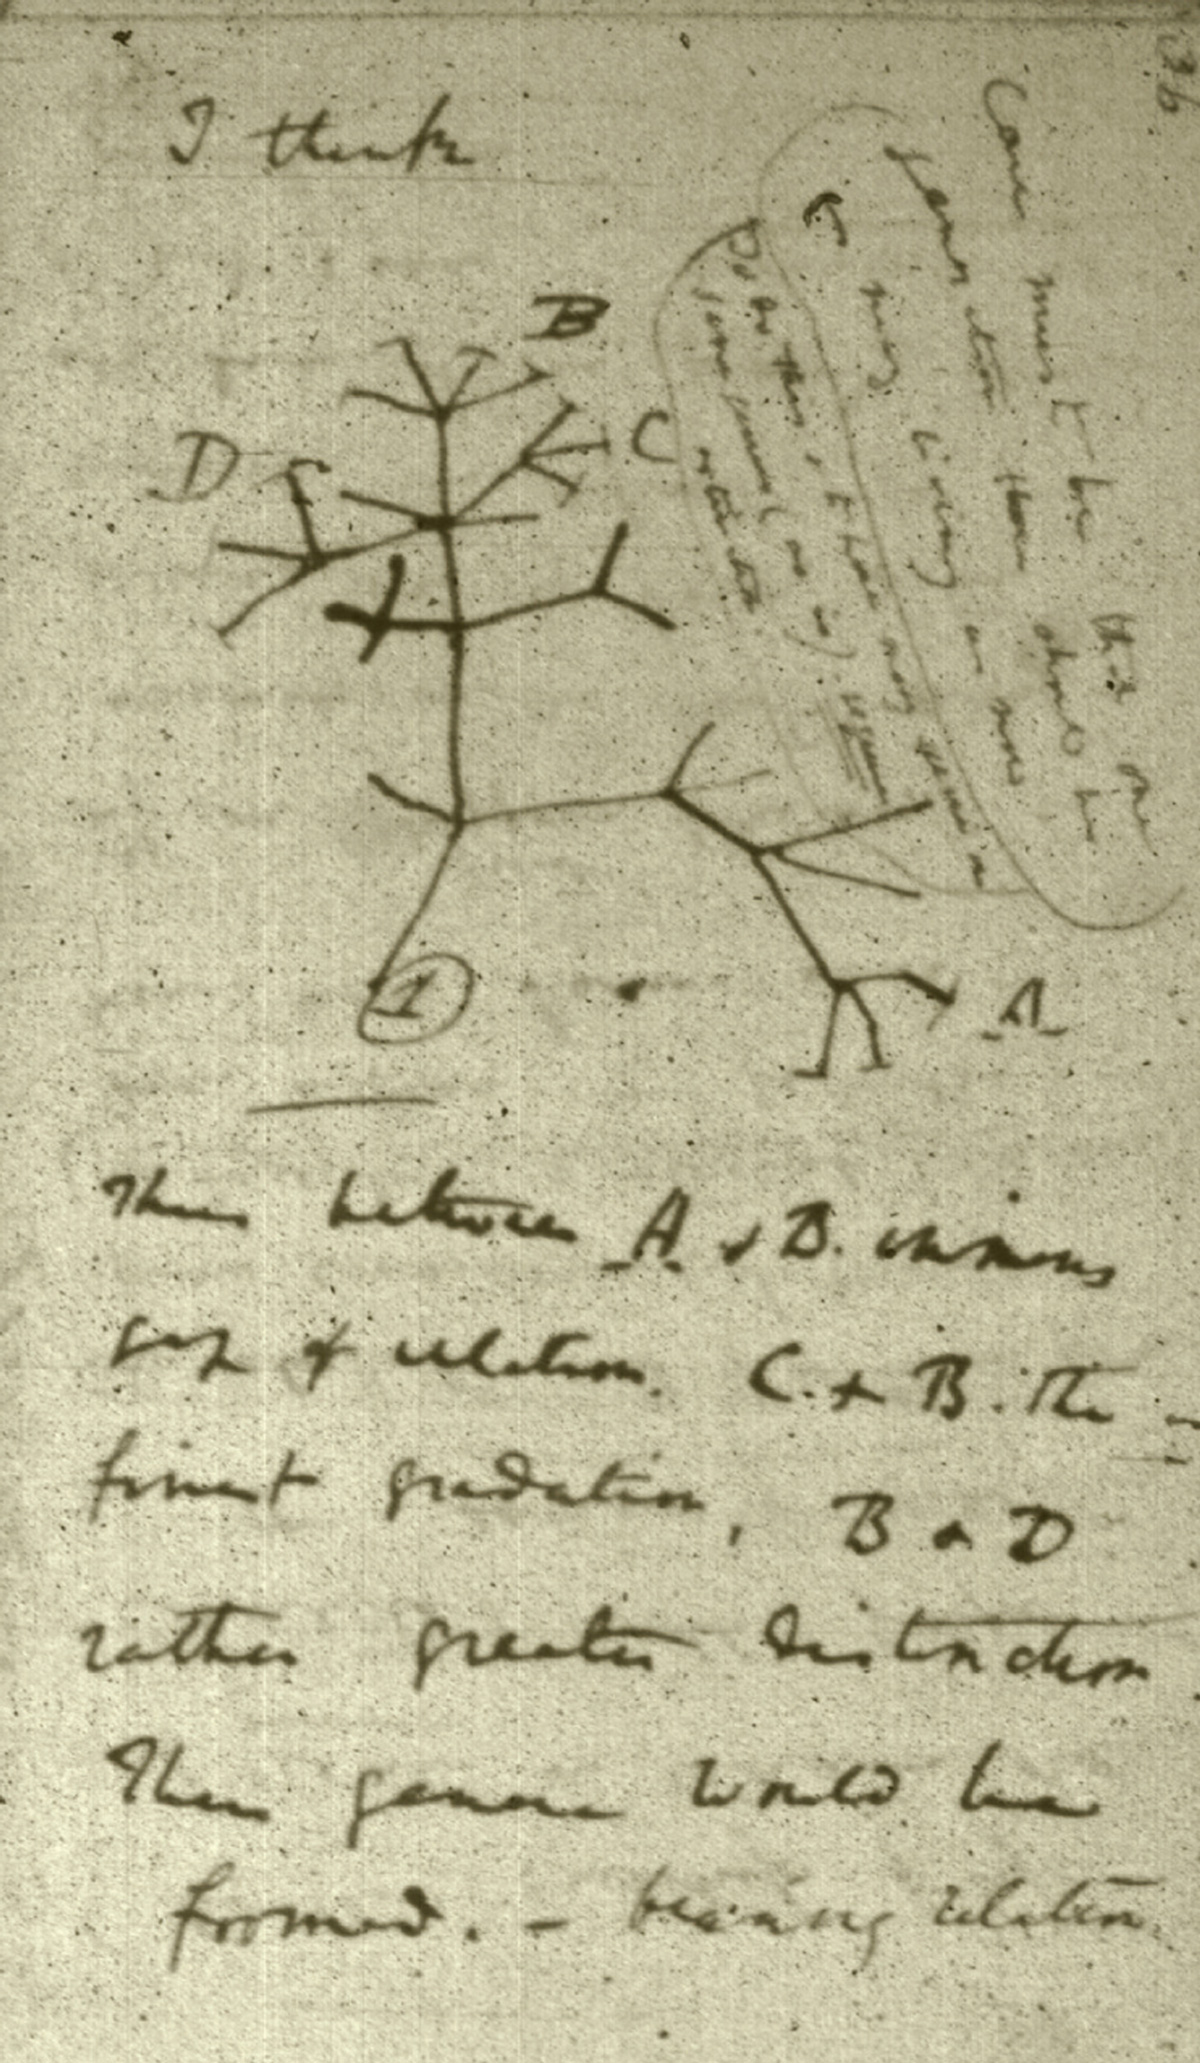 36
I think
Case must be that one
generation then should be
as many living as now
To do this & to have many species in
same genus (as is). requires
extinction.
B
C
D
A
1
Thus between A & B. immens
gap of relation. C. & B. the
finest gradation, B & D
rather greater distinction
Thus genera would be
formed. — bearing relation